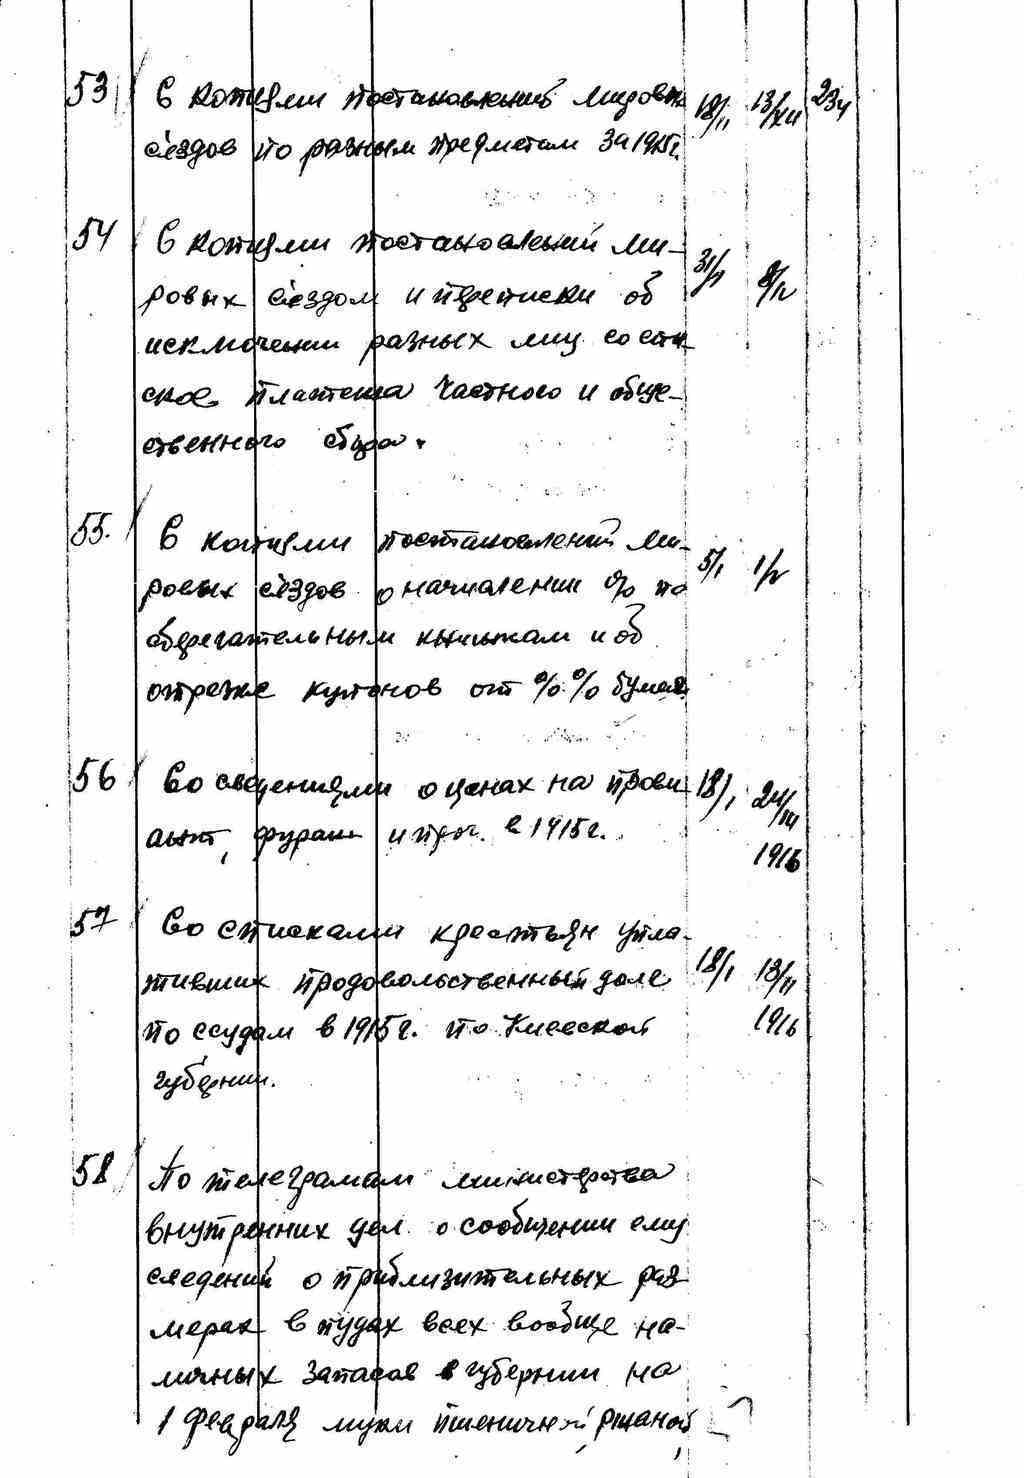 53 С копиями постановлений мировых 18/II 13/XII 234
съездов по разным предметам за 1915 г.
54 С копиями постановлений ми- 31/I 8/IV
ровых съездом и переписки об
исключении разных лиц со спи-
сков платежа частного и обще-
ственного сбора.
55. С копиями постановлений ми- 5/I 1/V
ровых съездов о начислении % по
сберегательным книжкам и об
отрезке купонов от %% бумаг
56 Со сведениями о ценах на прови- 18/I 24/III
ант, фураж и проч. в 1915 г. 1916
57 Со списками крестьян упла-
тивших продовольственный долг 18/I 13/II
по ссудам в 1915 г. по Киевской 1916
губернии.
58 По телеграмам министерства
внутренних дел о сообщении ему
сведений о приблизительных раз
мерах в пудах всех вообще на-
личных запасов в губернии на
1 февраля муки пшеничной, ржаной,